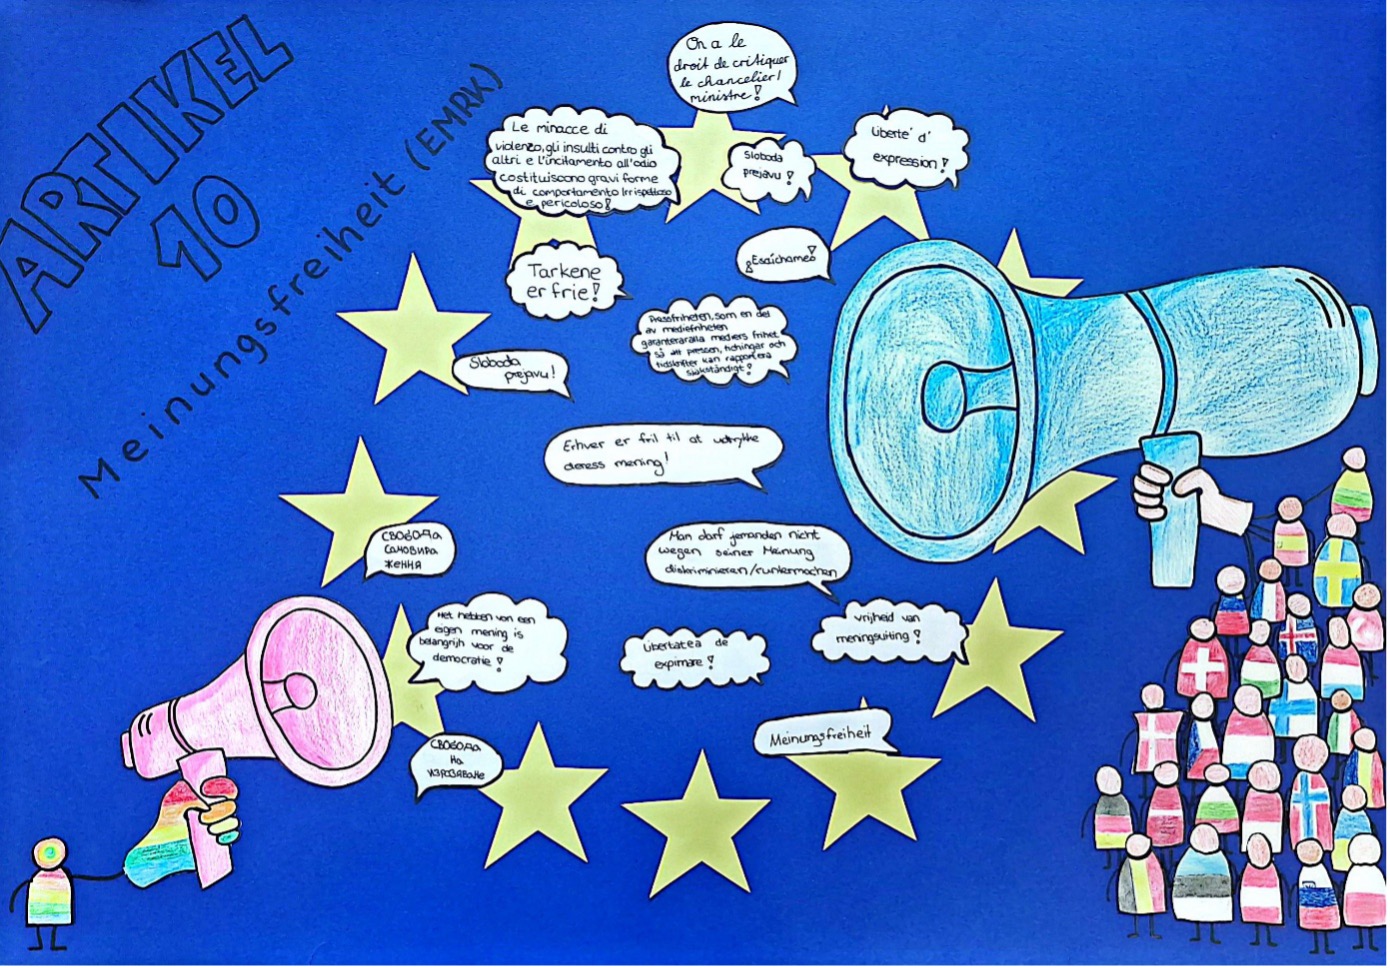 ARTIKEL
10
Meinungsfreiheit (EMRK)
On a le
droit de critiquer
le chancelier/
ministre!
Le minacce di
violenza, gli insulti contro gli
altri e l'incitamento all'odio
costituiscono gravi forme
di comportamento irrispettoso
e pericoloso!
Sloboda
prejavu!
Liberte' d'
expression!
Tarkene
er frie!
¡Escíchame!
Pressfriheten, som en del
av mediefriheten
garanterar alla mediers frihet
så att pressen, tidningar och
tidskrifter kan rapportera
självständigt!
Sloboda
prejavu!
Enhver er fril til at udtrykke
deress mening!
СВОБОДА
САМОВИРА
ЖЕННЯ
Man darf jemanden nicht
wegen seiner Meinung
diskriminieren/runtermachen
Het hebben von een
eigen mening is
belangrijh voor de
democratie!
Libertatea de
expimare!
vrijheid van
meningsuiting!
Meinungsfreiheit
СВОБОДА
НА
ИЗРАЗЯВАНЕ